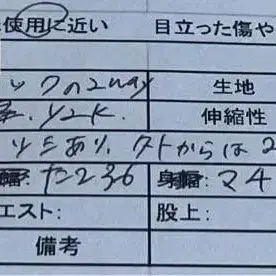 使用に近い 目立った傷や
ックの2way 生地
Y2K. 伸縮性
ツミあり、クトからは2
幅: た236 身幅: マ4
エスト: 股上:
備考